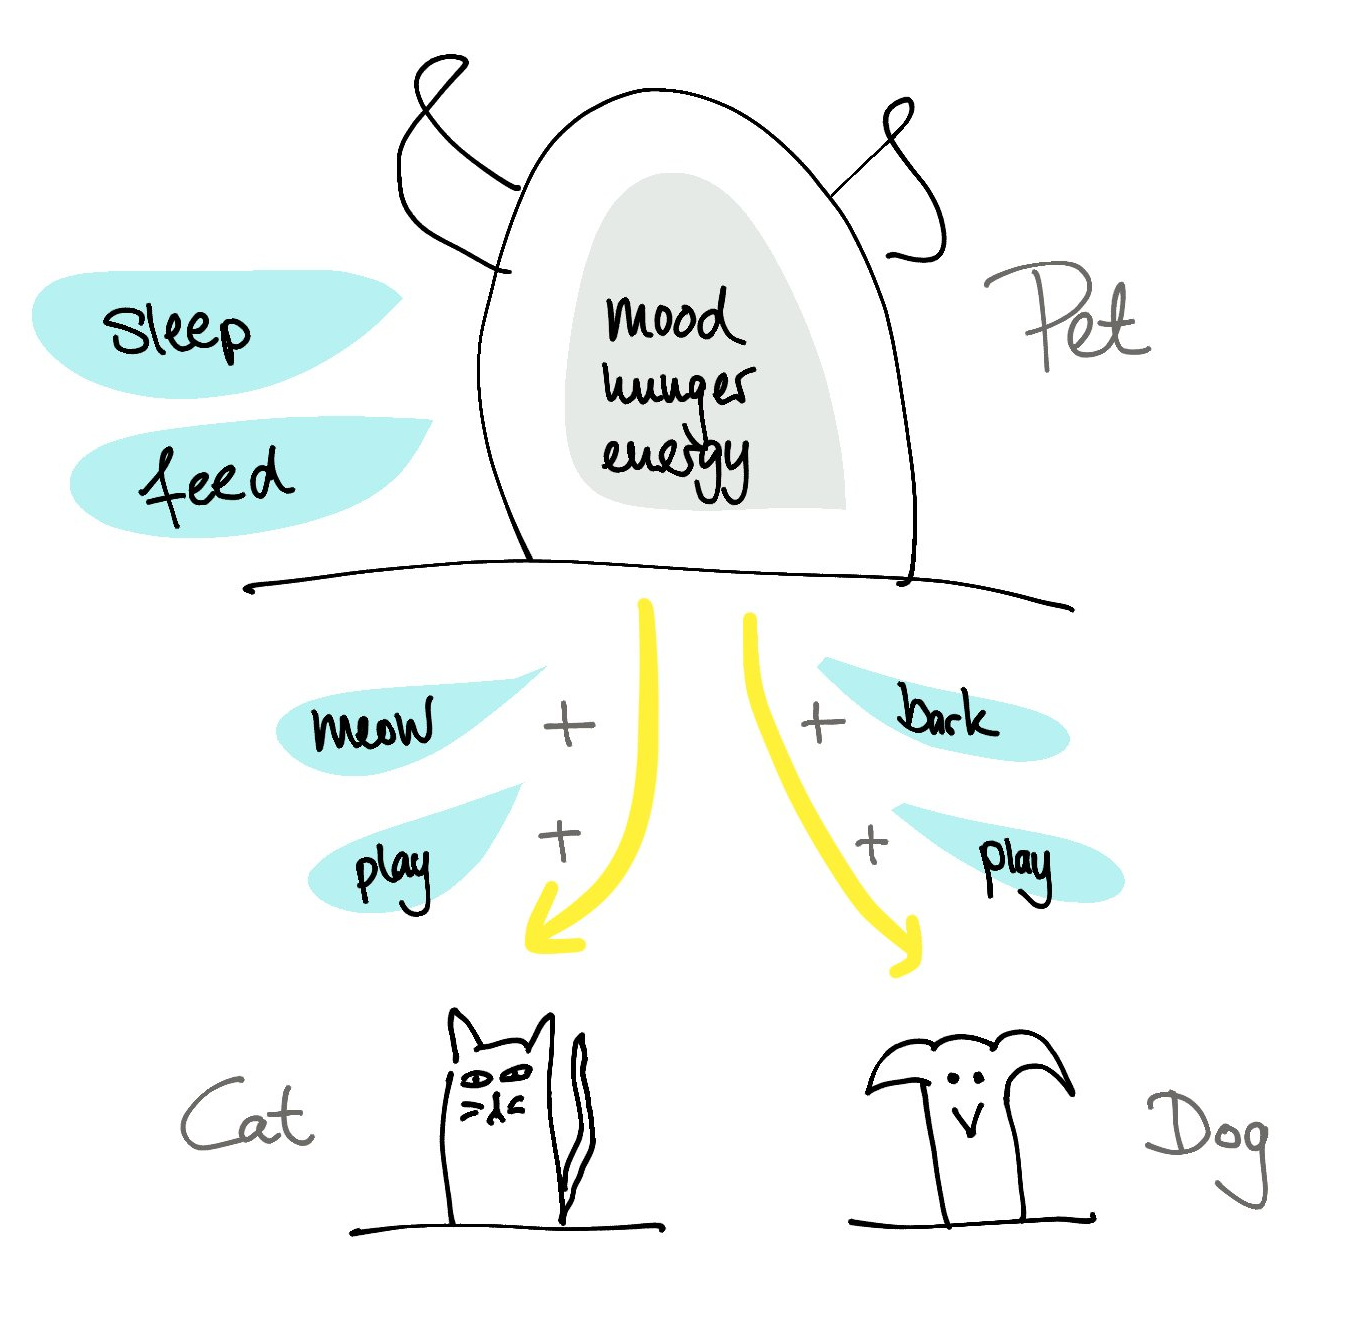 Sleep
feed
mood
hunger
energy
Pet
meow
+
+
bark
play
+
+
play
Cat
Dog